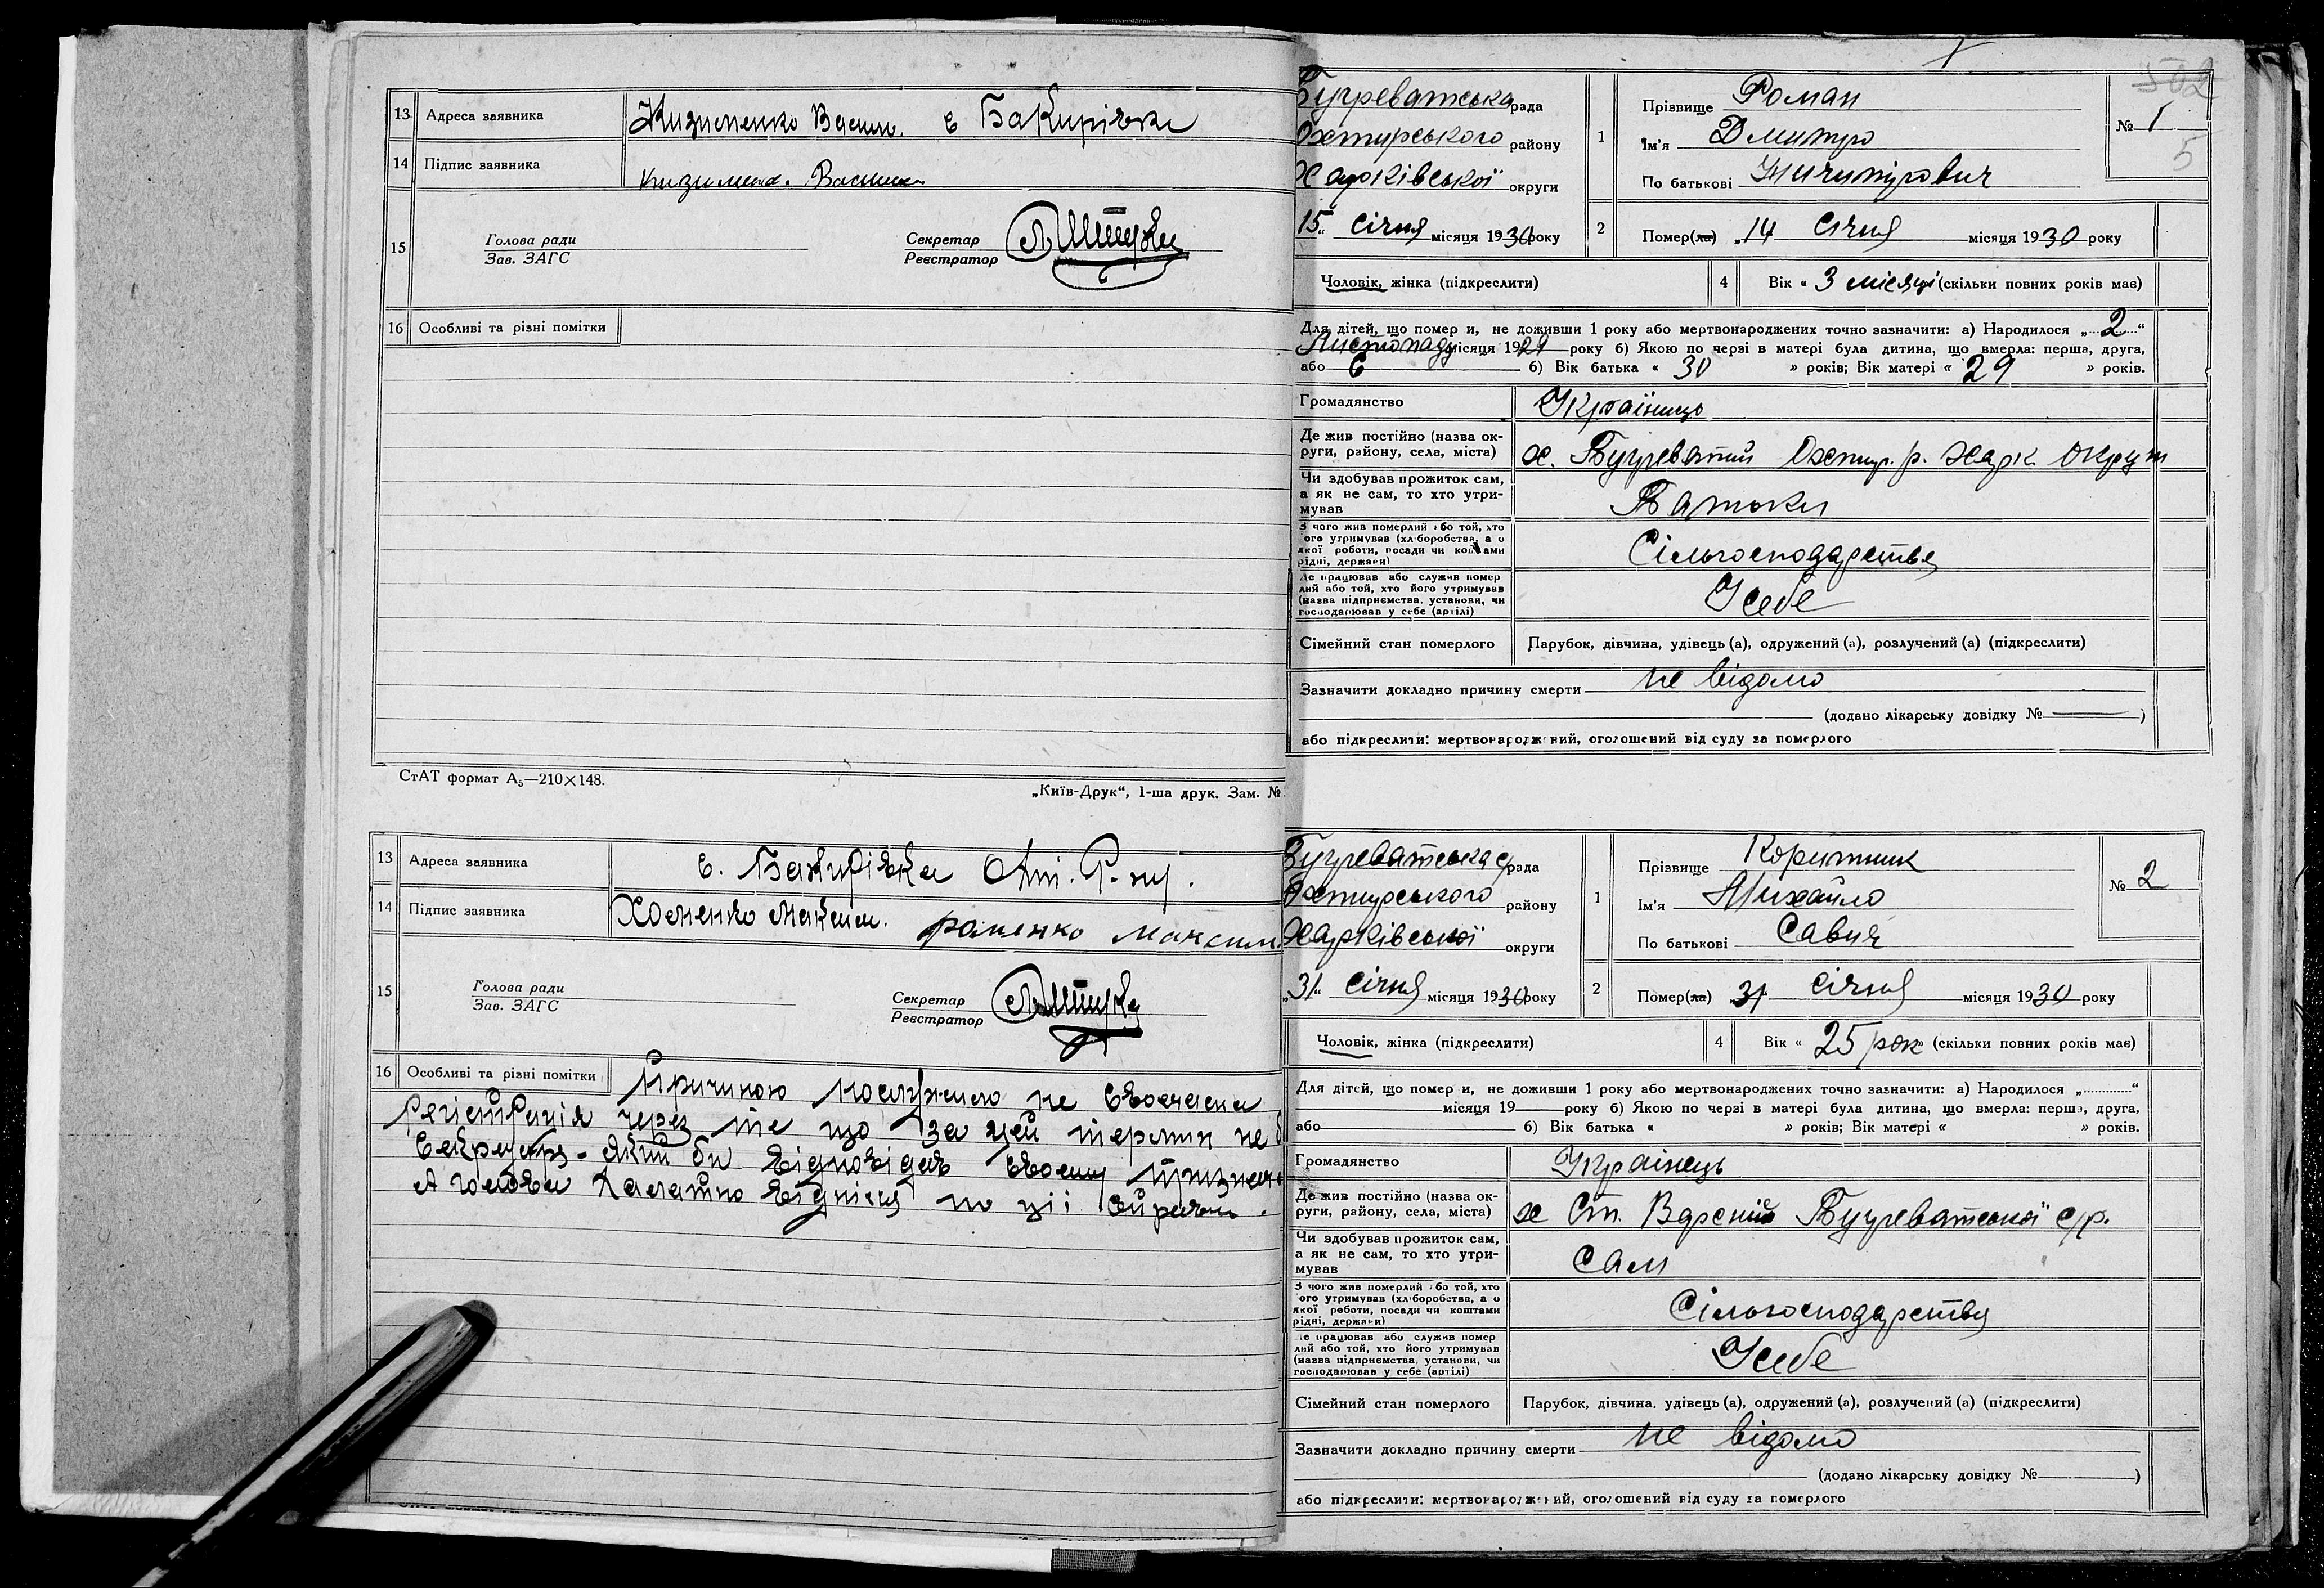 13 Адреса заявника Кизименко Васил. с Бакирівка
14 Підпис заявника Кизимен. Василь
15 Голова ради
Зав. ЗАГС
Секретар
Реєстратор
16 Особливі та різні помітки
СтАТ формат А₅—210×148.
„Київ-Друк“, 1-ша друк. Зам. №
13 Адреса заявника с. Бакирівка Охт. Р-ну.
14 Підпис заявника Хоменко Максим. Максим
15 Голова ради
Зав. ЗАГС
Секретар
Реєстратор
16 Особливі та різні помітки Причиною послужило не своєчасна
регістрація через те що за цей термин не
Секретаря - який би відповідав своєму
А голова халатно віднісся по ції справи.
502
5
Бугреватська рада
Охтирського району
Харківської округи
1 Прізвище Роман
Ім'я Дмитро
По батькові
№ 1
„15“ Січня місяця 1930 року
2 Помер(ла) „14 Січня місяця 1930 року
Чоловік, жінка (підкреслити) 4 Вік « 3 місяці (скільки повних років має)
Для дітей, що помер и, не доживши 1 року або мертвонароджених точно зазначити: а) Народилося „ 2 “
Листопаду місяця 1929 року б) Якою по черзі в матері була дитина, що вмерла: перша, друга,
або 6 б) Вік батька « 30 » років; Вік матері « 29 » років.
Громадянство Українець
Де жив постійно (назва ок-
руги, району, села, міста) х. Бугреватий Охтир. р. Харк округи
Чи здобував прожиток сам,
а як не сам, то хто утри-
мував Батьки
З чого жив померлий або той, хто
ого утримував (хліборобства, а о
якої роботи, посади чи коштами
рідні, держави) Сільгосподарства
Де працював або служив помер
лий або той, хто його утримував
(назва підприємства, установи, чи
господарював у себе (артілі) У себе
Сімейний стан померлого Парубок, дівчина, удівець (а), одружений (а), розлучений (а) (підкреслити)
Зазначити докладно причину смерти не відомо
(додано лікарську довідку № )
або підкреслити: мертвонароджений, оголошений від суду за померлого
Бугреватська с/рада
Охтирського району
Харківської округи
1 Прізвище Коритник
Ім'я Михайло
По батькові Савич
№ 2
„31“ Січня місяця 1930 року
2 Помер(ла) 31 Січня місяця 1930 року
Чоловік, жінка (підкреслити) 4 Вік « 25 рок» (скільки повних років має)
Для дітей, що помер и, не доживши 1 року або мертвонароджених точно зазначити: а) Народилося „ “
місяця 19 року б) Якою по черзі в матері була дитина, що вмерла: перша, друга,
або б) Вік батька « » років; Вік матері « » років.
Громадянство Українець
Де жив постійно (назва ок-
руги, району, села, міста) х Ст. Бугреватської с/р.
Чи здобував прожиток сам,
а як не сам, то хто утри-
мував Сам
З чого жив померлий або той, хто
ого утримував (хліборобства, а о
якої роботи, посади чи коштами
рідні, держави) Сільгосподарства
Де працював або служив помер
лий або той, хто його утримував
(назва підприємства, установи, чи
господарював у себе (артілі) У себе
Сімейний стан померлого Парубок, дівчина, удівець (а), одружений (а), розлучений (а) (підкреслити)
Зазначити докладно причину смерти не відомо
(додано лікарську довідку № )
або підкреслити: мертвонароджений, оголошений від суду за померлого